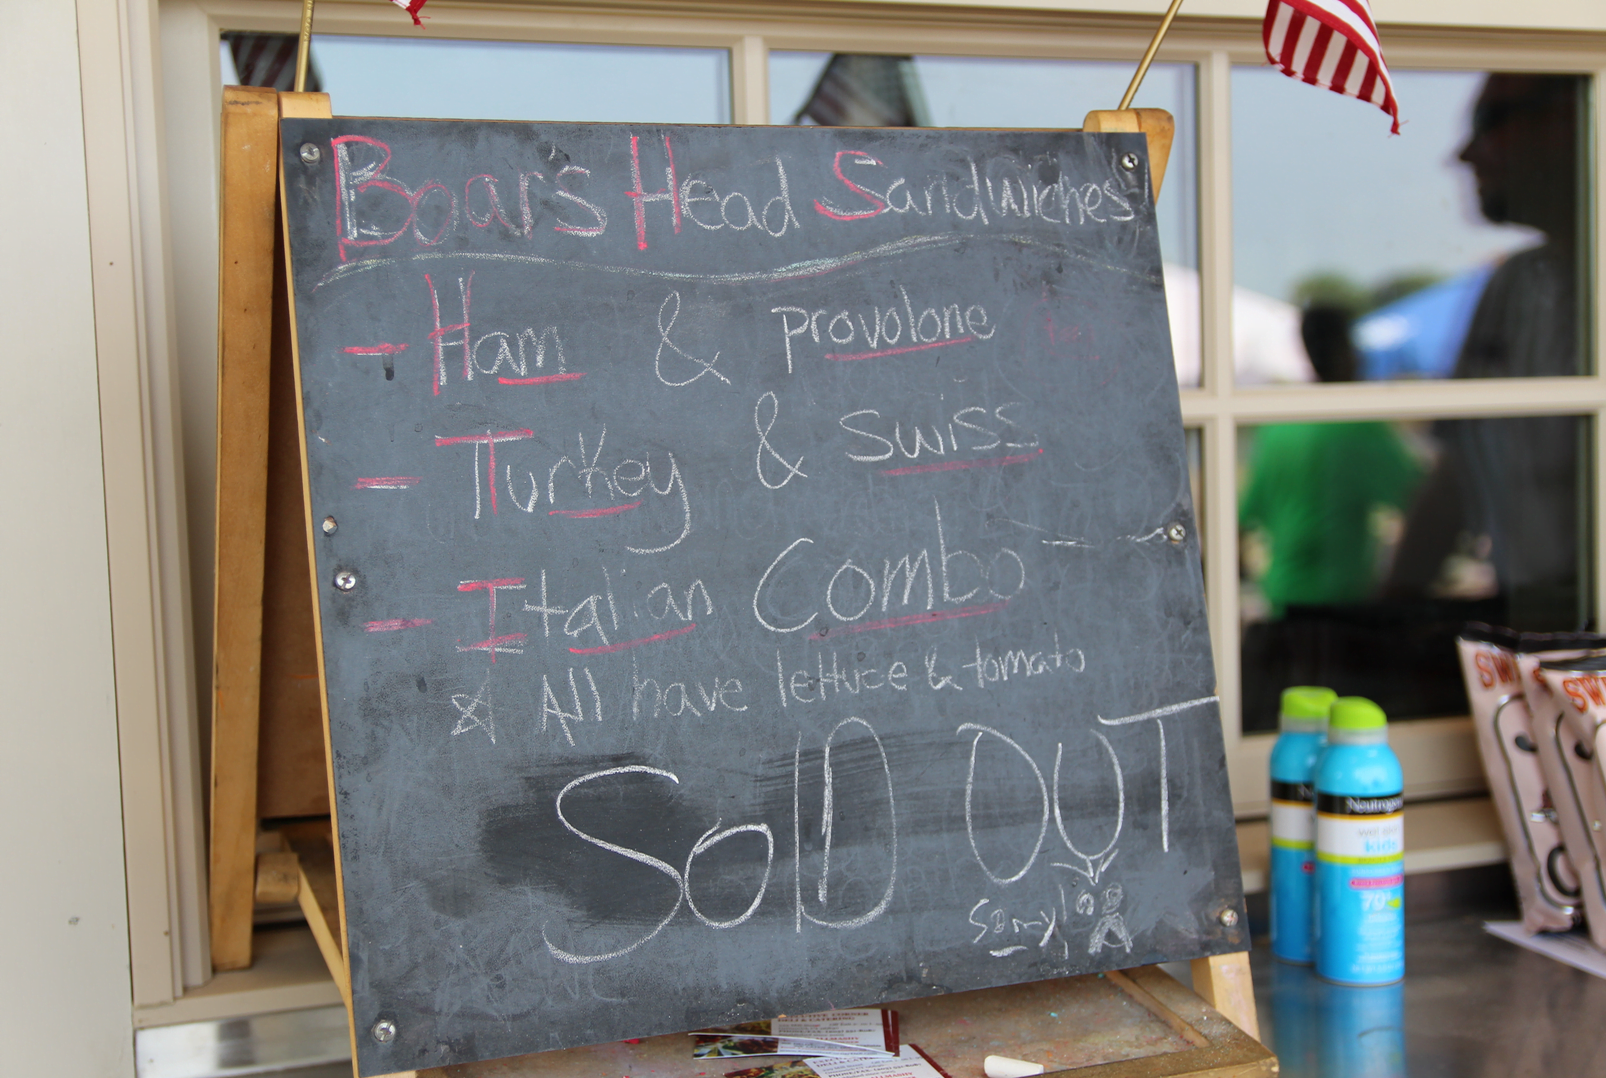 Boar's Head Sandwiches
- Ham & provolone
- Turkey & swiss
- Italian Combo
All have lettuce & tomato
SolD OUT
Sorry!
Neutrogena
wet skin
kids
70+
SW
SW